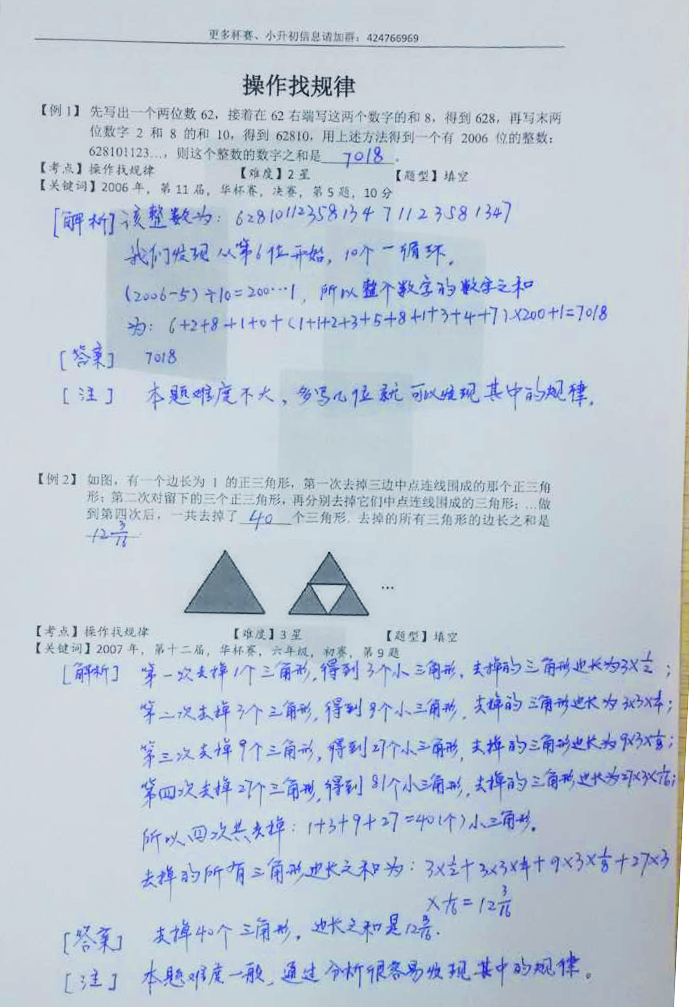 更多杯赛、小升初信息请加群：424766969
操作找规律
【例1】先写出一个两位数 62，接着在 62 右端写这两个数字的和 8，得到 628，再写末两
位数字 2 和 8 的和 10，得到 62810，用上述方法得到一个有 2006 位的整数：
628101123…，则这个整数的数字之和是 7018 .
【考点】操作找规律 【难度】2星 【题型】填空
【关键词】2006 年，第 11 届，华杯赛，决赛，第 5 题，10 分
[解析] 该整数为：6281011235813471123581347
我们发现从第6位开始，10个一循环，
(2006-5)÷10=200…1，所以整个数字的数字之和
为：6+2+8+1+0+(1+1+2+3+5+8+1+3+4+7)×200+1=7018
[答案] 7018
[注] 本题难度不大，多写几位就可以发现其中的规律。
【例2】如图，有一个边长为 1 的正三角形，第一次去掉三边中点连线围成的那个正三角
形；第二次对留下的三个正三角形，再分别去掉它们中点连线围成的三角形；…做
到第四次后，一共去掉了 40 个三角形．去掉的所有三角形的边长之和是
12 3/16
…
【考点】操作找规律 【难度】3星 【题型】填空
【关键词】2007 年，第十二届，华杯赛，六年级，初赛，第 9 题
[解析] 第一次去掉1个三角形，得到3个小三角形，去掉的三角形边长为3×1/2；
第二次去掉3个三角形，得到9个小三角形，去掉的三角形边长为3×3×1/4；
第三次去掉9个三角形，得到27个小三角形，去掉的三角形边长为9×3×1/8；
第四次去掉27个三角形，得到81个小三角形，去掉的三角形边长为27×3×1/16；
所以四次共去掉：1+3+9+27=40(个)小三角形。
去掉的所有三角形边长之和为：3×1/2+3×3×1/4+9×3×1/8+27×3
×1/16=12 3/16
[答案] 去掉40个三角形，边长之和是12 3/16.
[注] 本题难度一般，通过分析很容易发现其中的规律。